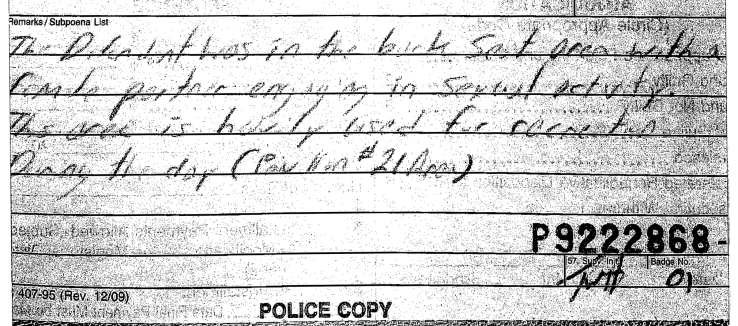 Remarks / Subpoena List
The Defendant was in the back seat area with a
female partner engaging in sexual activity.
This area is heavily used for recreation
During the day (Pavilion #21 Area)
P9222868-
57. Supv. Init. Badge No.
01
407-95 (Rev. 12/09)
POLICE COPY